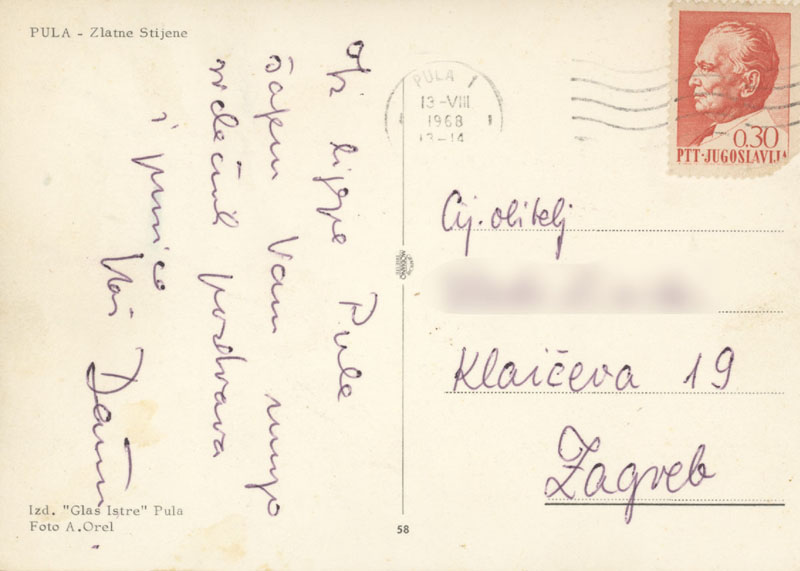 PULA - Zlatne Stijene
Iz lijepe Pule
šaljem Vam mnogo
srdačnih pozdrava
i
Vaš
Izd. "Glas Istre" Pula
Foto A.Orel
58
PULA 1
13-VIII
1968
13-14
0.30
PTT-JUGOSLAVIJA
Cij. obitelj
Klaićeva 19
Zagreb